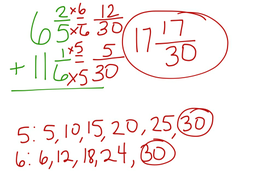 6 2/5 ×6/×6 12/30
+ 11 1/6 ×5/×5 5/30
17 17/30
5: 5, 10, 15, 20, 25, 30
6: 6, 12, 18, 24, 30